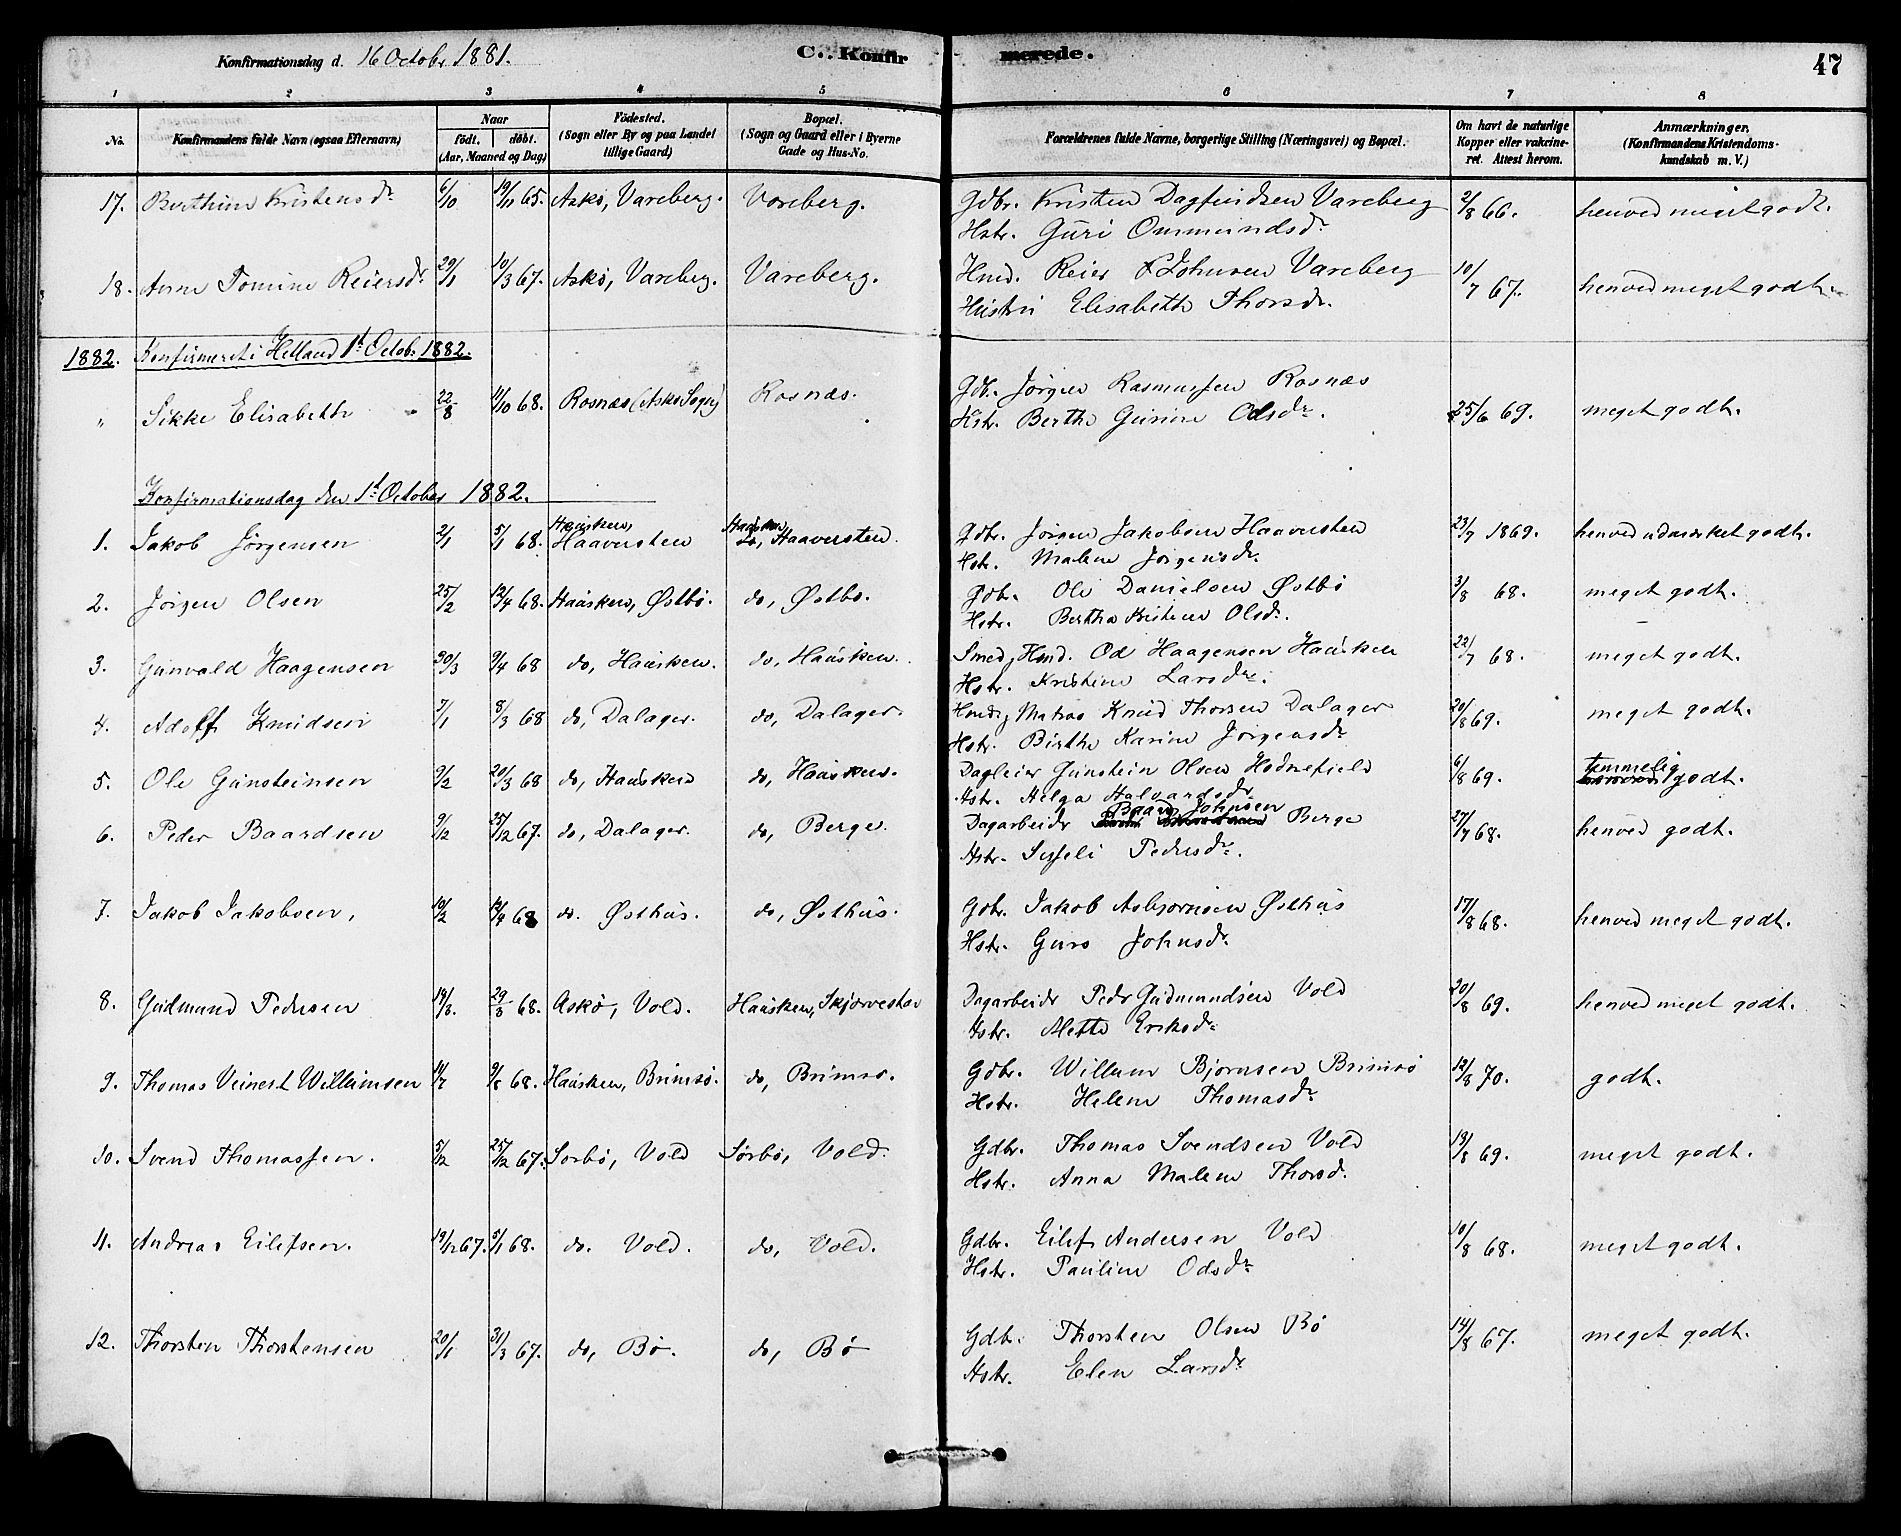 Konfirmationsdag d. 16 Octobr 1881. C. Konfir merede. 47
1 2 3 4 5 6 7 8
No. Konfirmandens fulde Navn (ogsaa Efternavn) Naar födt. döbt. (Aar, Maaned og Dag) Födested. (Sogn eller By og paa Landet tillige Gaard) Bopæl. (Sogn og Gaard eller i Byerne Gade og Hus-No. Forældrenes fulde Navne, borgerlige Stilling (Næringsvei) og Bopæl. Om havt de naturlige Kopper eller vakcineret. Attest herom. Anmærkninger. (Konfirmandens Kristendomskundskab m. V.)
17. Berthine Kristensdr 6/10 19/11 65. Askø, Vareberg. Vareberg. Gdbr. Kristen Dagfindsen Vareberg 2/8 66. henved meget godt.
Hstr. Guri Ommundsdr
18. Anne Tomine Reiersdr 29/1 10/3 67. Askø, Vareberg. Vareberg. Hmd. Reier Johnsen Vareberg 10/7 67. henved meget godt.
Hustru Elisabeth Thorsdr.
1882. Konfirmeret i Hetland 1st Octobr 1882.
" Sikke Elisabeth 22/8 11/10 68. Rosnæs (Askø Sogn) Rosnæs. Gdb. Jørgen Rasmussen Rosnæs
Hstr. Berthe Gurine Odsdr. 25/6 69. meget godt.
Konfirmationsdag den 1st October 1882.
1. Jakob Jørgensen 2/1 5/1 68. Hausken, Haaversten Hausken, Haaversten. Gdbr. Jørgen Jakobsen Haaversten 23/7 1869. henved udmærket godt.
Hstr. Malene Jørgensdr.
2. Jørgen Olsen 25/2 12/4 68. Hausken, Østbø. do, Østbø. Gdbr. Ole Danielsen Østbø 3/8 68. meget godt.
Hstr. Bertha Kristine Olsdr.
3. Gunvald Haagensen 30/3 9/4 68 do, Hausken. do, Hausken. Smed, Hmd. Od Haagensen Hausken 22/7 68. meget godt.
Hstr. Kristine Larsdr.
4. Adolf Knudsen 7/1 8/3 68 do, Dalager. do, Dalager. Hmd, Matros Knud Thorsen Dalager 20/8 69. meget godt.
Hstr. Birthe Karine Jørgensdr
5. Ole Gunsteinsen 9/2 20/3 68 do, Hausken do, Hausken. Dagleier Gunstein Olsen Hodnefjeld 6/8 69. temmelig godt.
Hstr. Helga Halvardsdr.
6. Peder Baardsen 9/12 25/12 67. do, Dalager. do, Berge. Dagarbeidr Baard Johnsen Berge 27/7 68. henved godt.
Hstr. Sisseli Pedersdr.
7. Jakob Jakobsen, 10/2 12/4 68 do. Østhus. do, Østhus. Gdbr. Jakob Asbjørnsen Østhus 17/8 68. henved meget godt.
Hstr. Guro Johnsdr.
8. Gudmund Pedersen 14/3. 29/3 68. Askø, Vold. Hausken, Skjørvestad Dagarbeidr Pedr Gudmundsen Vold 20/8 69. henved meget godt.
Hstr. Mette Eriksdr
9. Thomas Veinert Willumsen 14/7 9/8 68. Hausken, Brimsø. do, Brimsø. Gdbr. Willum Bjørnsen Brimsø 12/8 70. godt.
Hstr. Helene Thomasdr
10. Svend Thomassen. 5/12 25/12 67. Sørbø, Vold Sørbø, Vold. Gdbr. Thomas Svendsen Vold 19/8 69. meget godt.
Hstr. Anna Malene Thorsd.
11. Andreas Eilefsen. 19/12 67. 5/1 68. do. Vold. do, Vold. Gdbr. Eilef Andersen Vold 10/8 68. meget godt.
Hstr. Pauline Odsdr
12. Thorsten Thorstensen 20/1 31/3 67. do, Bø. do, Bø Gdbr. Thorsten Olsen Bø 14/8 67. meget godt.
Hstr. Elen Larsdr